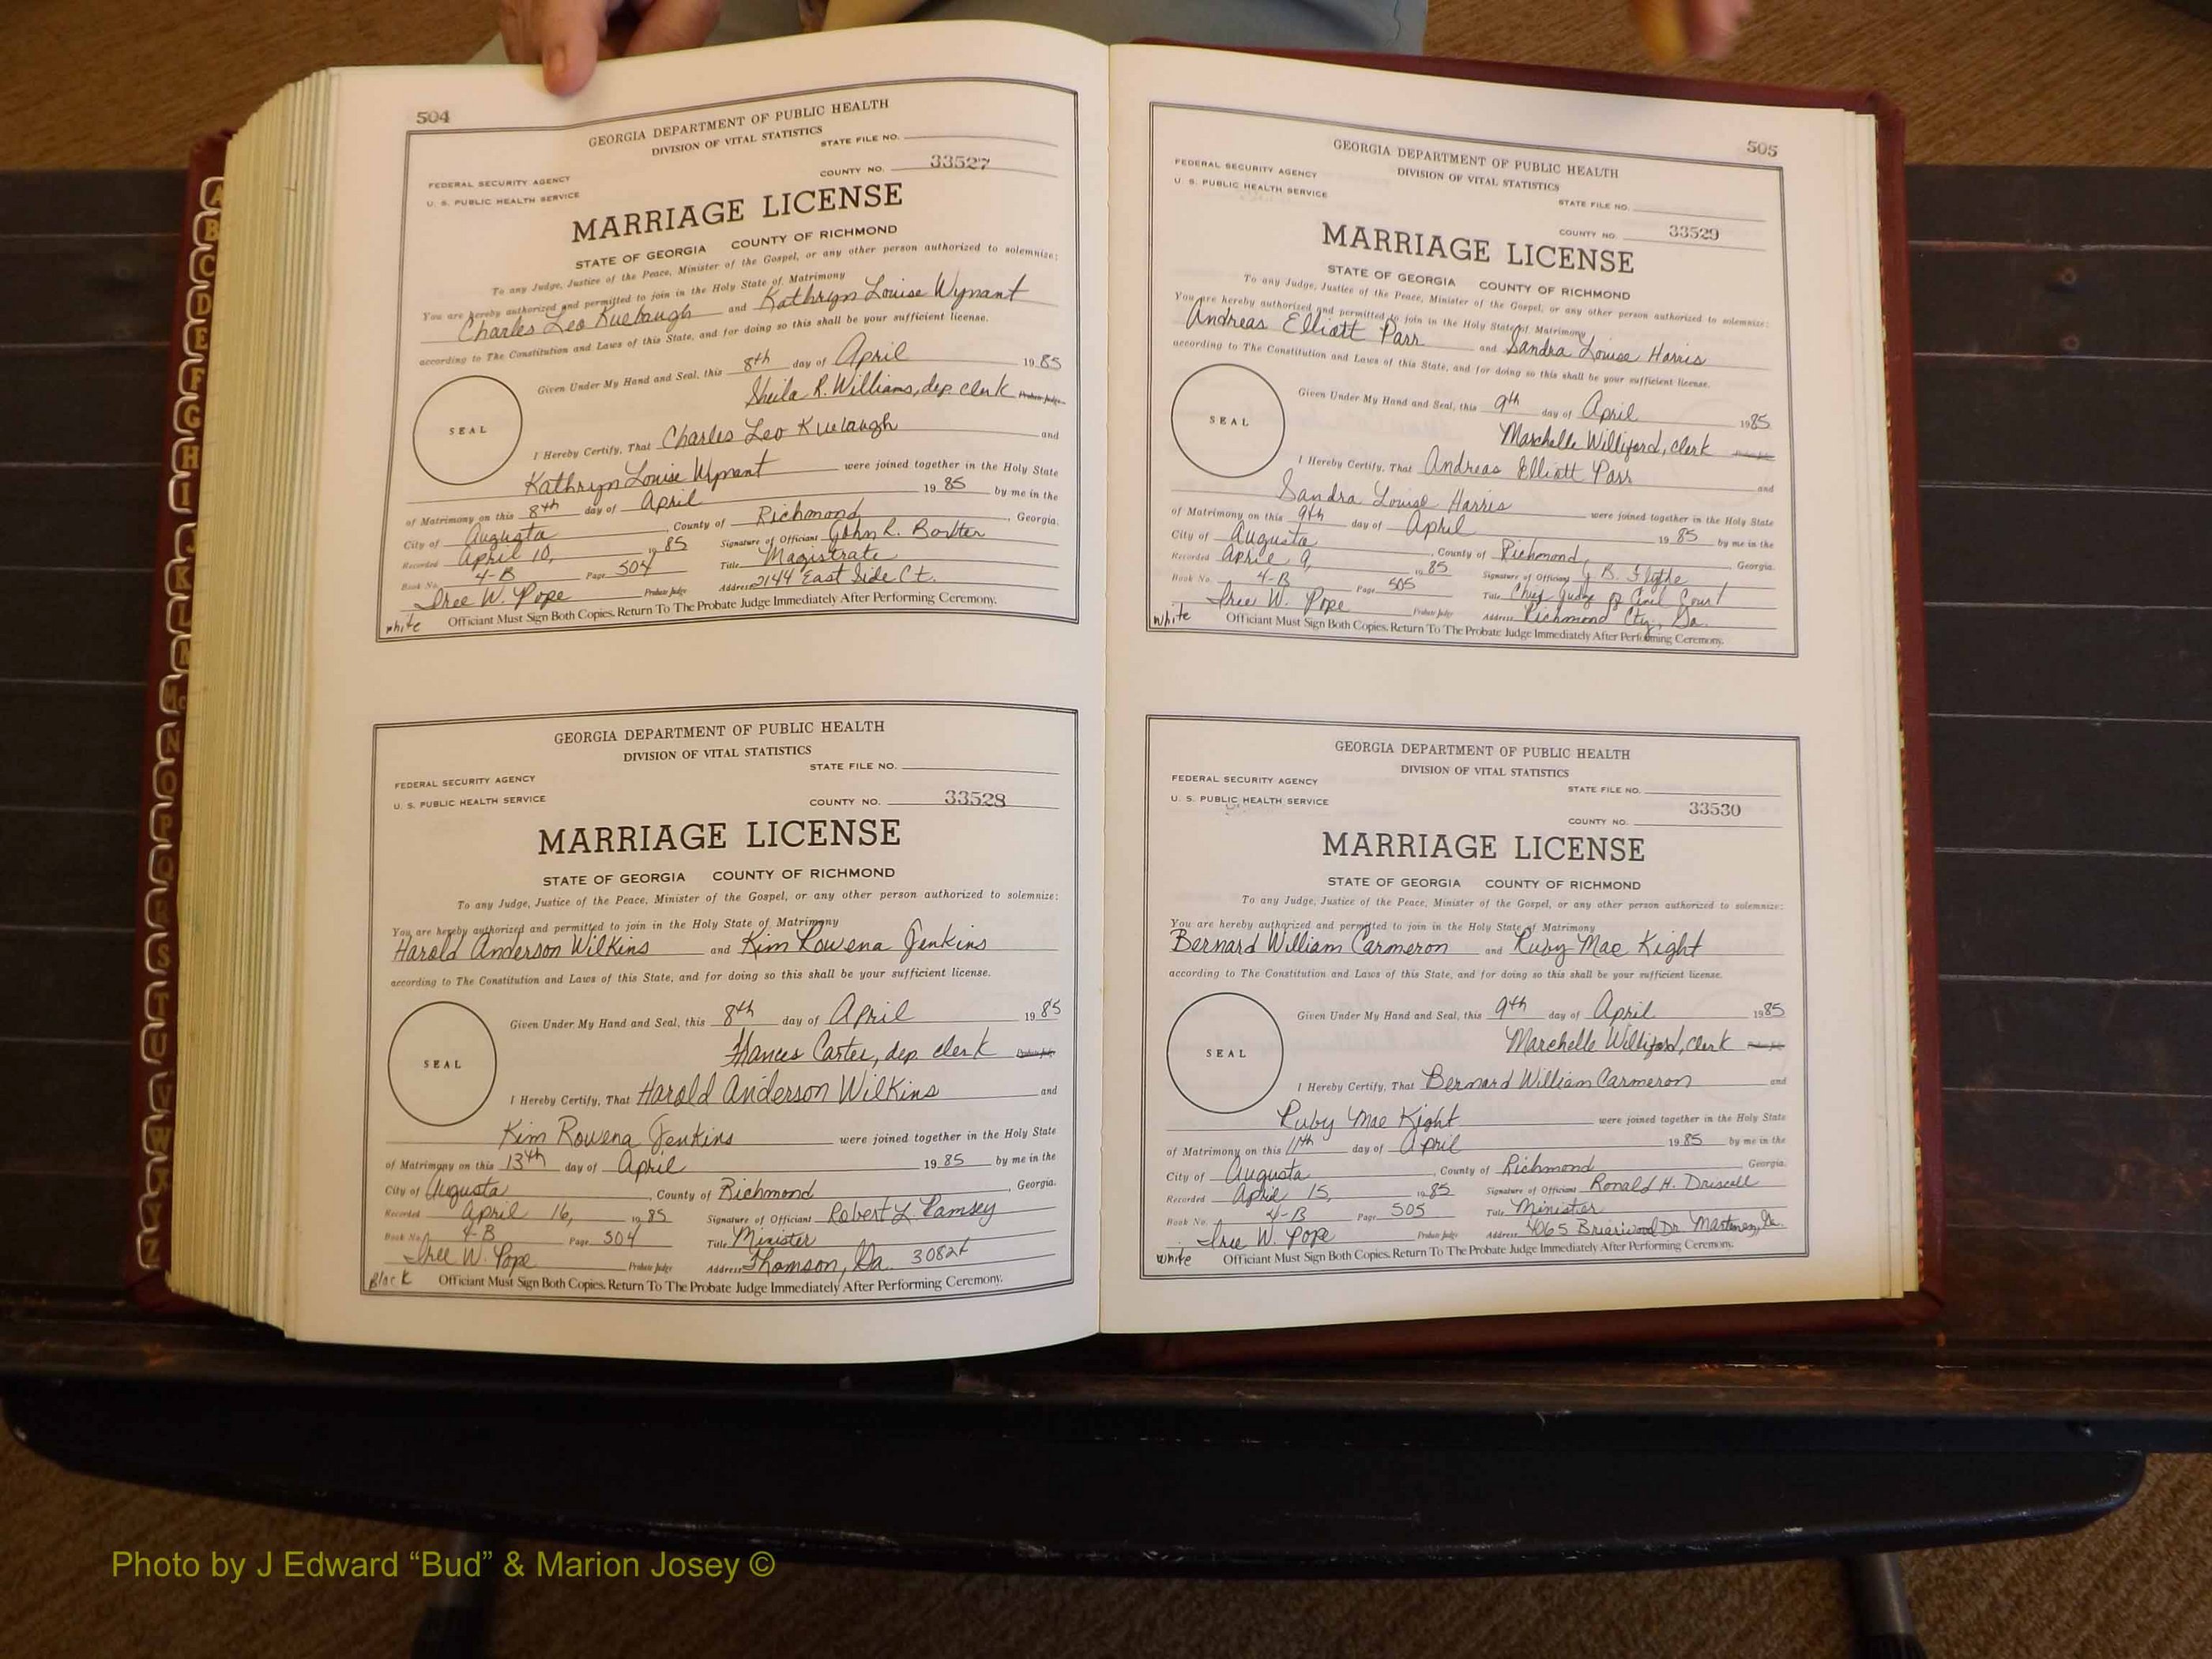 504
GEORGIA DEPARTMENT OF PUBLIC HEALTH
DIVISION OF VITAL STATISTICS
STATE FILE NO.
FEDERAL SECURITY AGENCY
U. S. PUBLIC HEALTH SERVICE
COUNTY NO. 33527
MARRIAGE LICENSE
STATE OF GEORGIA COUNTY OF RICHMOND
To any Judge, Justice of the Peace, Minister of the Gospel, or any other person authorized to solemnize:
You are hereby authorized and permitted to join in the Holy State of Matrimony
Charles Leo Kuebaugh and Kathryn Louise Wynant
according to The Constitution and Laws of this State, and for doing so this shall be your sufficient license.
Given Under My Hand and Seal, this 8th day of April 1985
Sheila R. Williams, dep. clerk Probate Judge
SEAL
I Hereby Certify, That Charles Leo Kuebaugh and
Kathryn Louise Wynant were joined together in the Holy State
of Matrimony on this 8th day of April 1985 by me in the
City of Augusta, County of Richmond, Georgia.
Recorded April 10, 1985 Signature of Officiant John R. Borlter
Book No. 4-B Page 504 Title Magistrate
Iree W. Pope Probate Judge Address 2144 East Side Ct.
white Officiant Must Sign Both Copies. Return To The Probate Judge Immediately After Performing Ceremony.
GEORGIA DEPARTMENT OF PUBLIC HEALTH
DIVISION OF VITAL STATISTICS
STATE FILE NO.
FEDERAL SECURITY AGENCY
U. S. PUBLIC HEALTH SERVICE
COUNTY NO. 33528
MARRIAGE LICENSE
STATE OF GEORGIA COUNTY OF RICHMOND
To any Judge, Justice of the Peace, Minister of the Gospel, or any other person authorized to solemnize:
You are hereby authorized and permitted to join in the Holy State of Matrimony
Harold Anderson Wilkins and Kim Rowena Jenkins
according to The Constitution and Laws of this State, and for doing so this shall be your sufficient license.
Given Under My Hand and Seal, this 8th day of April 1985
Frances Carter, dep. clerk Probate Judge
SEAL
I Hereby Certify, That Harold Anderson Wilkins and
Kim Rowena Jenkins were joined together in the Holy State
of Matrimony on this 13th day of April 1985 by me in the
City of Augusta, County of Richmond, Georgia.
Recorded April 16, 1985 Signature of Officiant Robert L. Ramsey
Book No. 4-B Page 504 Title Minister
Iree W. Pope Probate Judge Address Thomson, Ga. 30824
Black Officiant Must Sign Both Copies. Return To The Probate Judge Immediately After Performing Ceremony.
505
GEORGIA DEPARTMENT OF PUBLIC HEALTH
DIVISION OF VITAL STATISTICS
FEDERAL SECURITY AGENCY
U. S. PUBLIC HEALTH SERVICE
STATE FILE NO.
COUNTY NO. 33529
MARRIAGE LICENSE
STATE OF GEORGIA COUNTY OF RICHMOND
To any Judge, Justice of the Peace, Minister of the Gospel, or any other person authorized to solemnize:
You are hereby authorized and permitted to join in the Holy State of Matrimony
Andreas Elliott Parr and Sandra Louise Harris
according to The Constitution and Laws of this State, and for doing so this shall be your sufficient license.
Given Under My Hand and Seal, this 9th day of April 1985
Marchelle Williford, clerk Probate Judge
SEAL
I Hereby Certify, That Andreas Elliott Parr and
Sandra Louise Harris were joined together in the Holy State
of Matrimony on this 9th day of April 1985 by me in the
City of Augusta, County of Richmond, Georgia.
Recorded April 9, 1985 Signature of Officiant J. B. Flythe
Book No. 4-B Page 505 Title Chief Judge of Civil Court
Iree W. Pope Probate Judge Address Richmond Cty., Ga.
white Officiant Must Sign Both Copies. Return To The Probate Judge Immediately After Performing Ceremony.
GEORGIA DEPARTMENT OF PUBLIC HEALTH
DIVISION OF VITAL STATISTICS
FEDERAL SECURITY AGENCY
U. S. PUBLIC HEALTH SERVICE
STATE FILE NO.
COUNTY NO. 33530
MARRIAGE LICENSE
STATE OF GEORGIA COUNTY OF RICHMOND
To any Judge, Justice of the Peace, Minister of the Gospel, or any other person authorized to solemnize:
You are hereby authorized and permitted to join in the Holy State of Matrimony
Bernard William Carmeron and Ruby Mae Kight
according to The Constitution and Laws of this State, and for doing so this shall be your sufficient license.
Given Under My Hand and Seal, this 9th day of April 1985
Marchelle Williford, clerk Probate Judge
SEAL
I Hereby Certify, That Bernard William Carmeron and
Ruby Mae Kight were joined together in the Holy State
of Matrimony on this 11th day of April 1985 by me in the
City of Augusta, County of Richmond Georgia.
Recorded April 15, 1985 Signature of Officiant Ronald H. Driscell
Book No. 4-B Page 505 Title Minister
Iree W. Pope Probate Judge Address 4065 Briarwood Dr. Martinez, Ga.
white Officiant Must Sign Both Copies. Return To The Probate Judge Immediately After Performing Ceremony.
Photo by J Edward “Bud” & Marion Josey ©